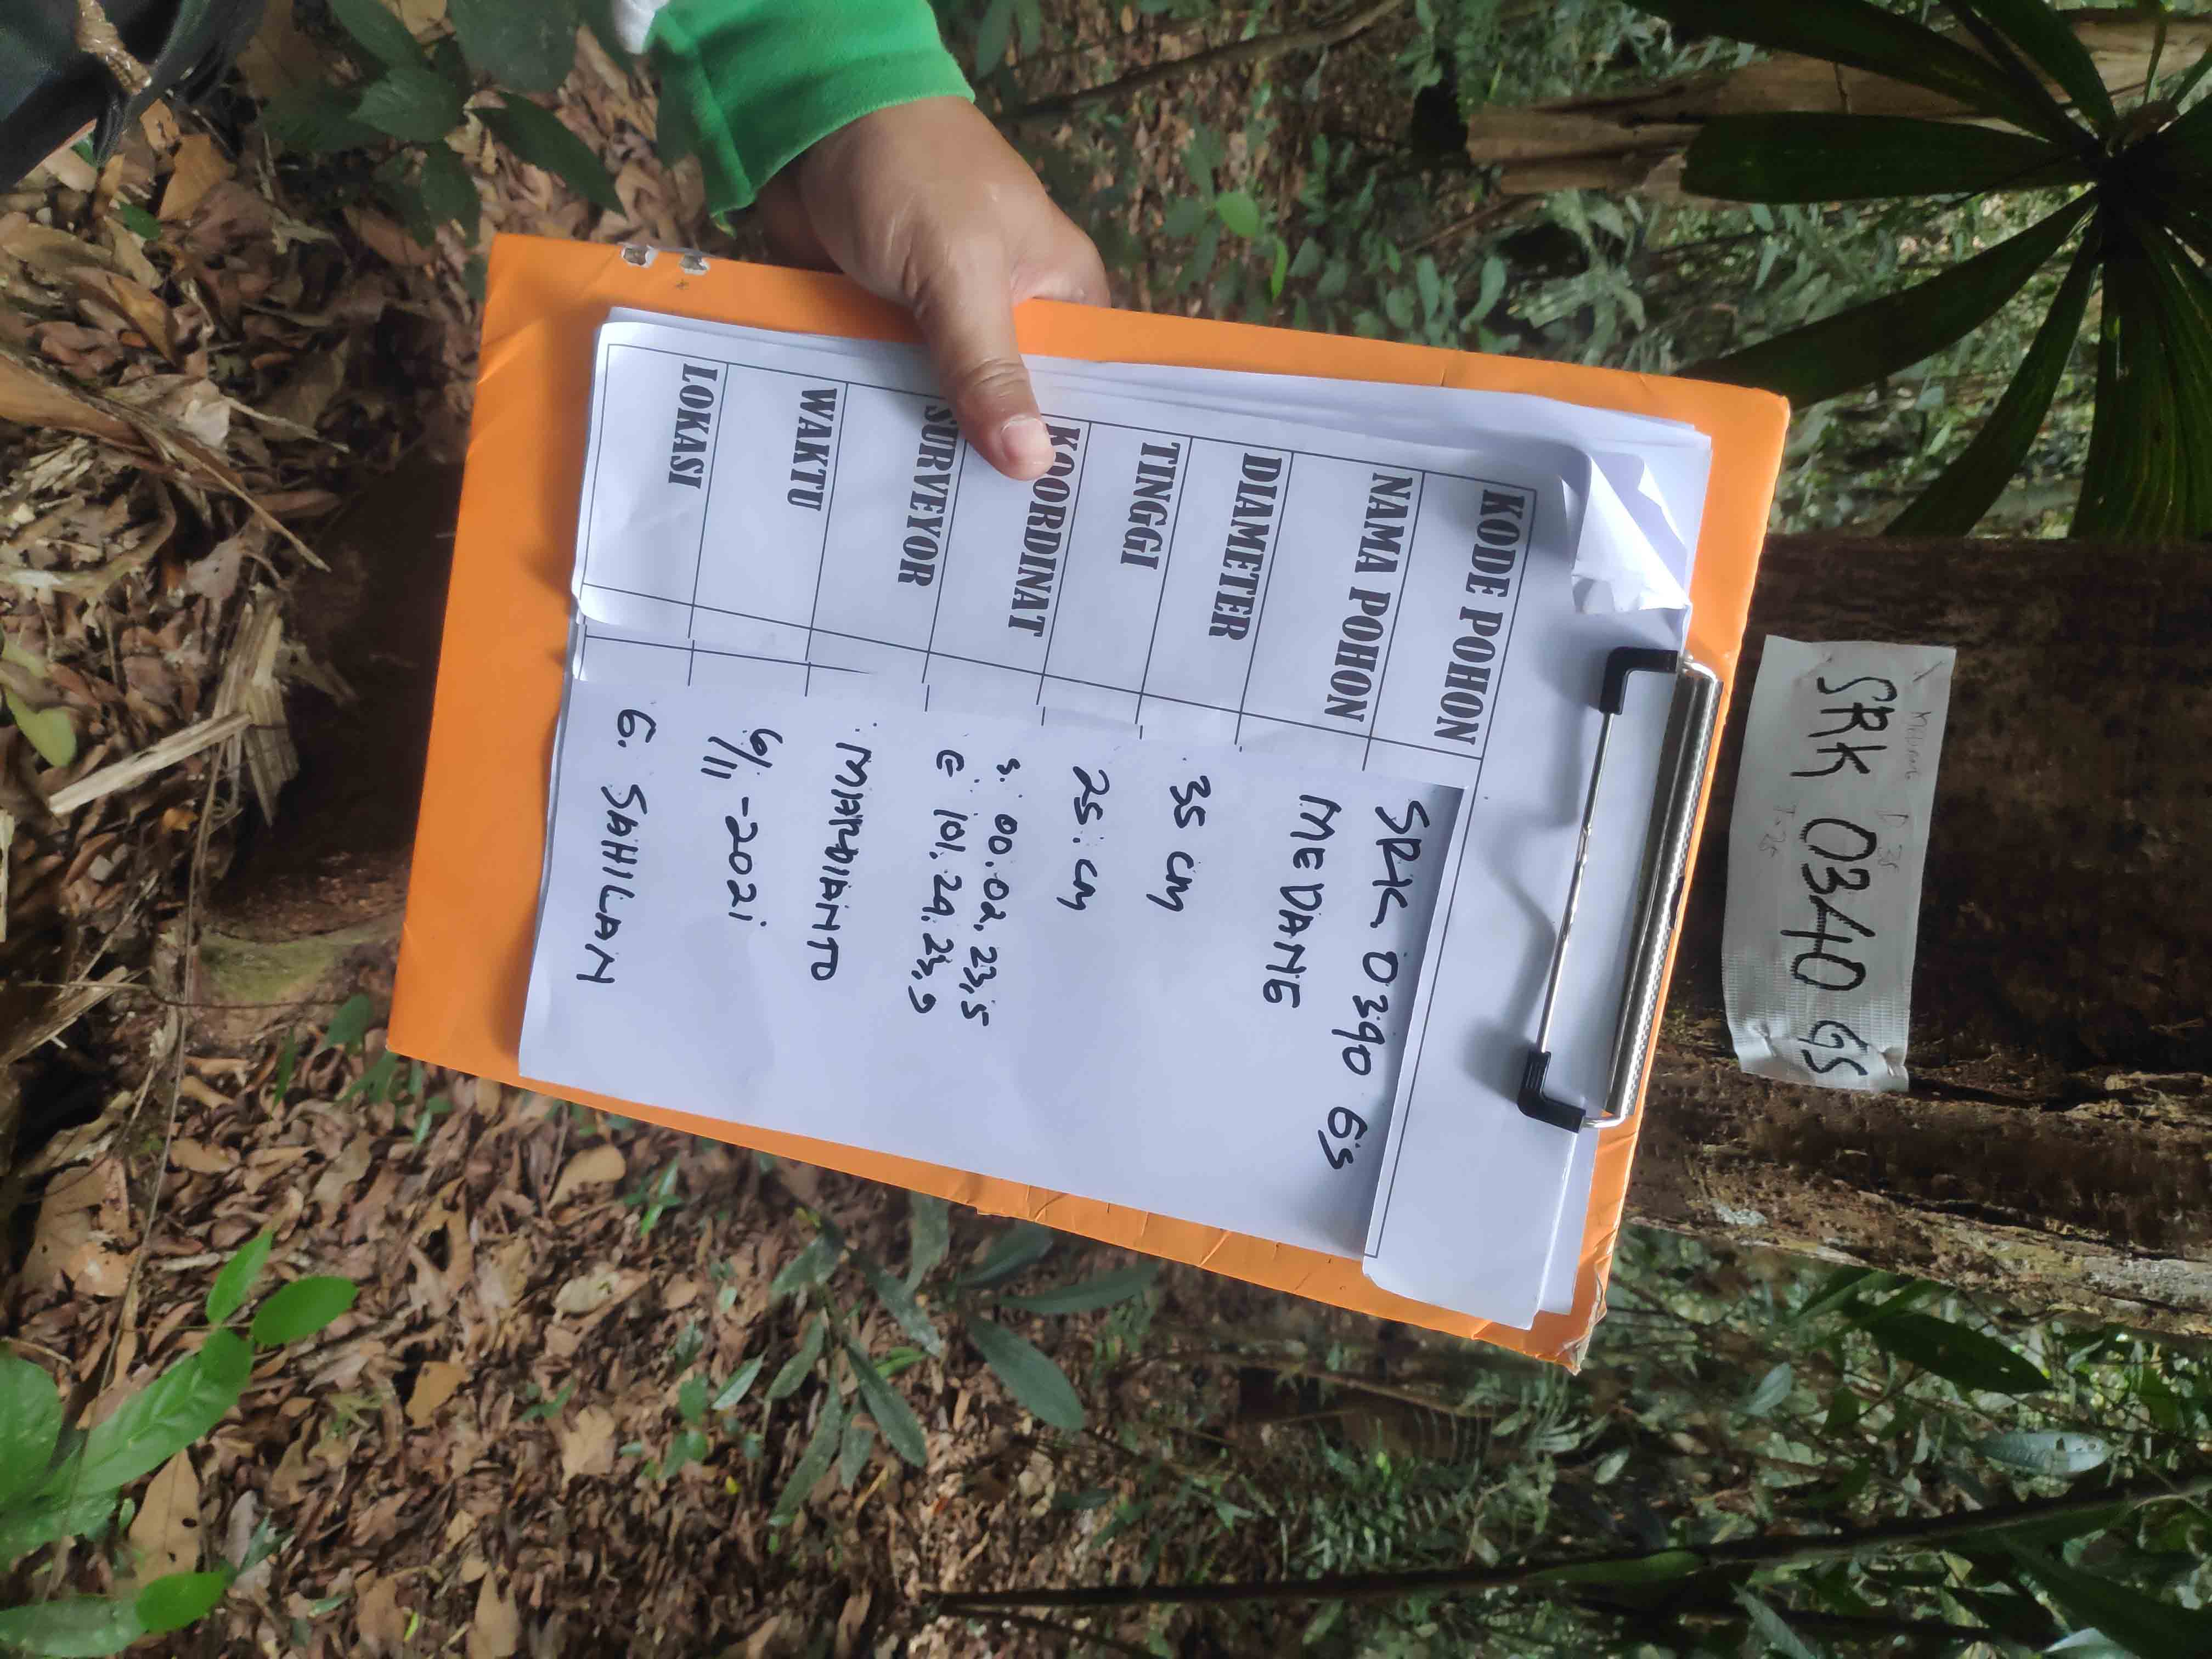 MEDANG D. 35
SRK 0340 GS
T. 25
KODE POHON SRK 0340 GS
NAMA POHON MEDANG
DIAMETER 35 CM
TINGGI 25. CM
KOORDINAT S. 00. 02. 23,5
E 101. 24. 23,9
SURVEYOR MARDIANTO
WAKTU 6/11 -2021
LOKASI G. SAHILAN